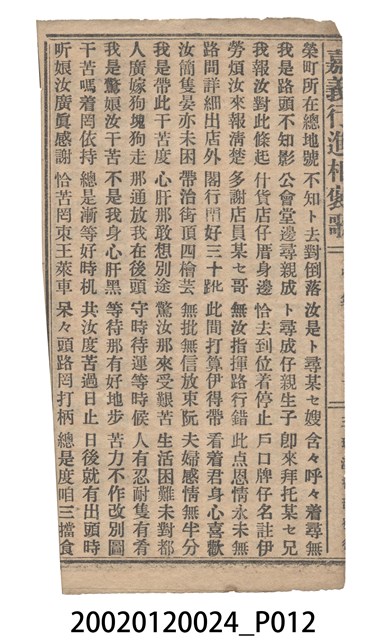 嘉義行進相褒歌
榮町所在總地號 不知卜去對倒落 汝是卜尋某セ嫂 含々呼々着尋無
我是路頭不知影 公會堂邊尋親成 卜尋成仔親生子 卽來拜托某セ兄
我報汝對此條起 什貨店仔厝身邊 恰去到位着停止 戶口牌仔名註伊
勞煩汝來報淸楚 多謝店員某セ哥 無汝指揮路行錯 此点恩情永未無
路問詳細出店外 閣行好三十 此間打算伊得帶 看着君身心喜歡
汝簡隻晏亦未困 帶治街頂四檜芸 無批無信放東阮 夫婦感情無半分
我是帶此干苦度 心肝那敢想別途 驚汝那來受艱苦 生活困難未對都
人廣嫁狗塊狗走 那通放我在後頭 守時待運等時候 人有忍耐隻有肴
我是驚娘汝干苦 不是我身心肝黑 等待那有好地步 苦力不作改別圖
干苦嗎着罔依持 總是漸等好時机 共汝度苦過日止 日後就有出頭時
听娘汝廣眞感謝 恰苦罔東王萊車 呆々頭路罔打柄 總是度咱三擋食
20020120024_P012